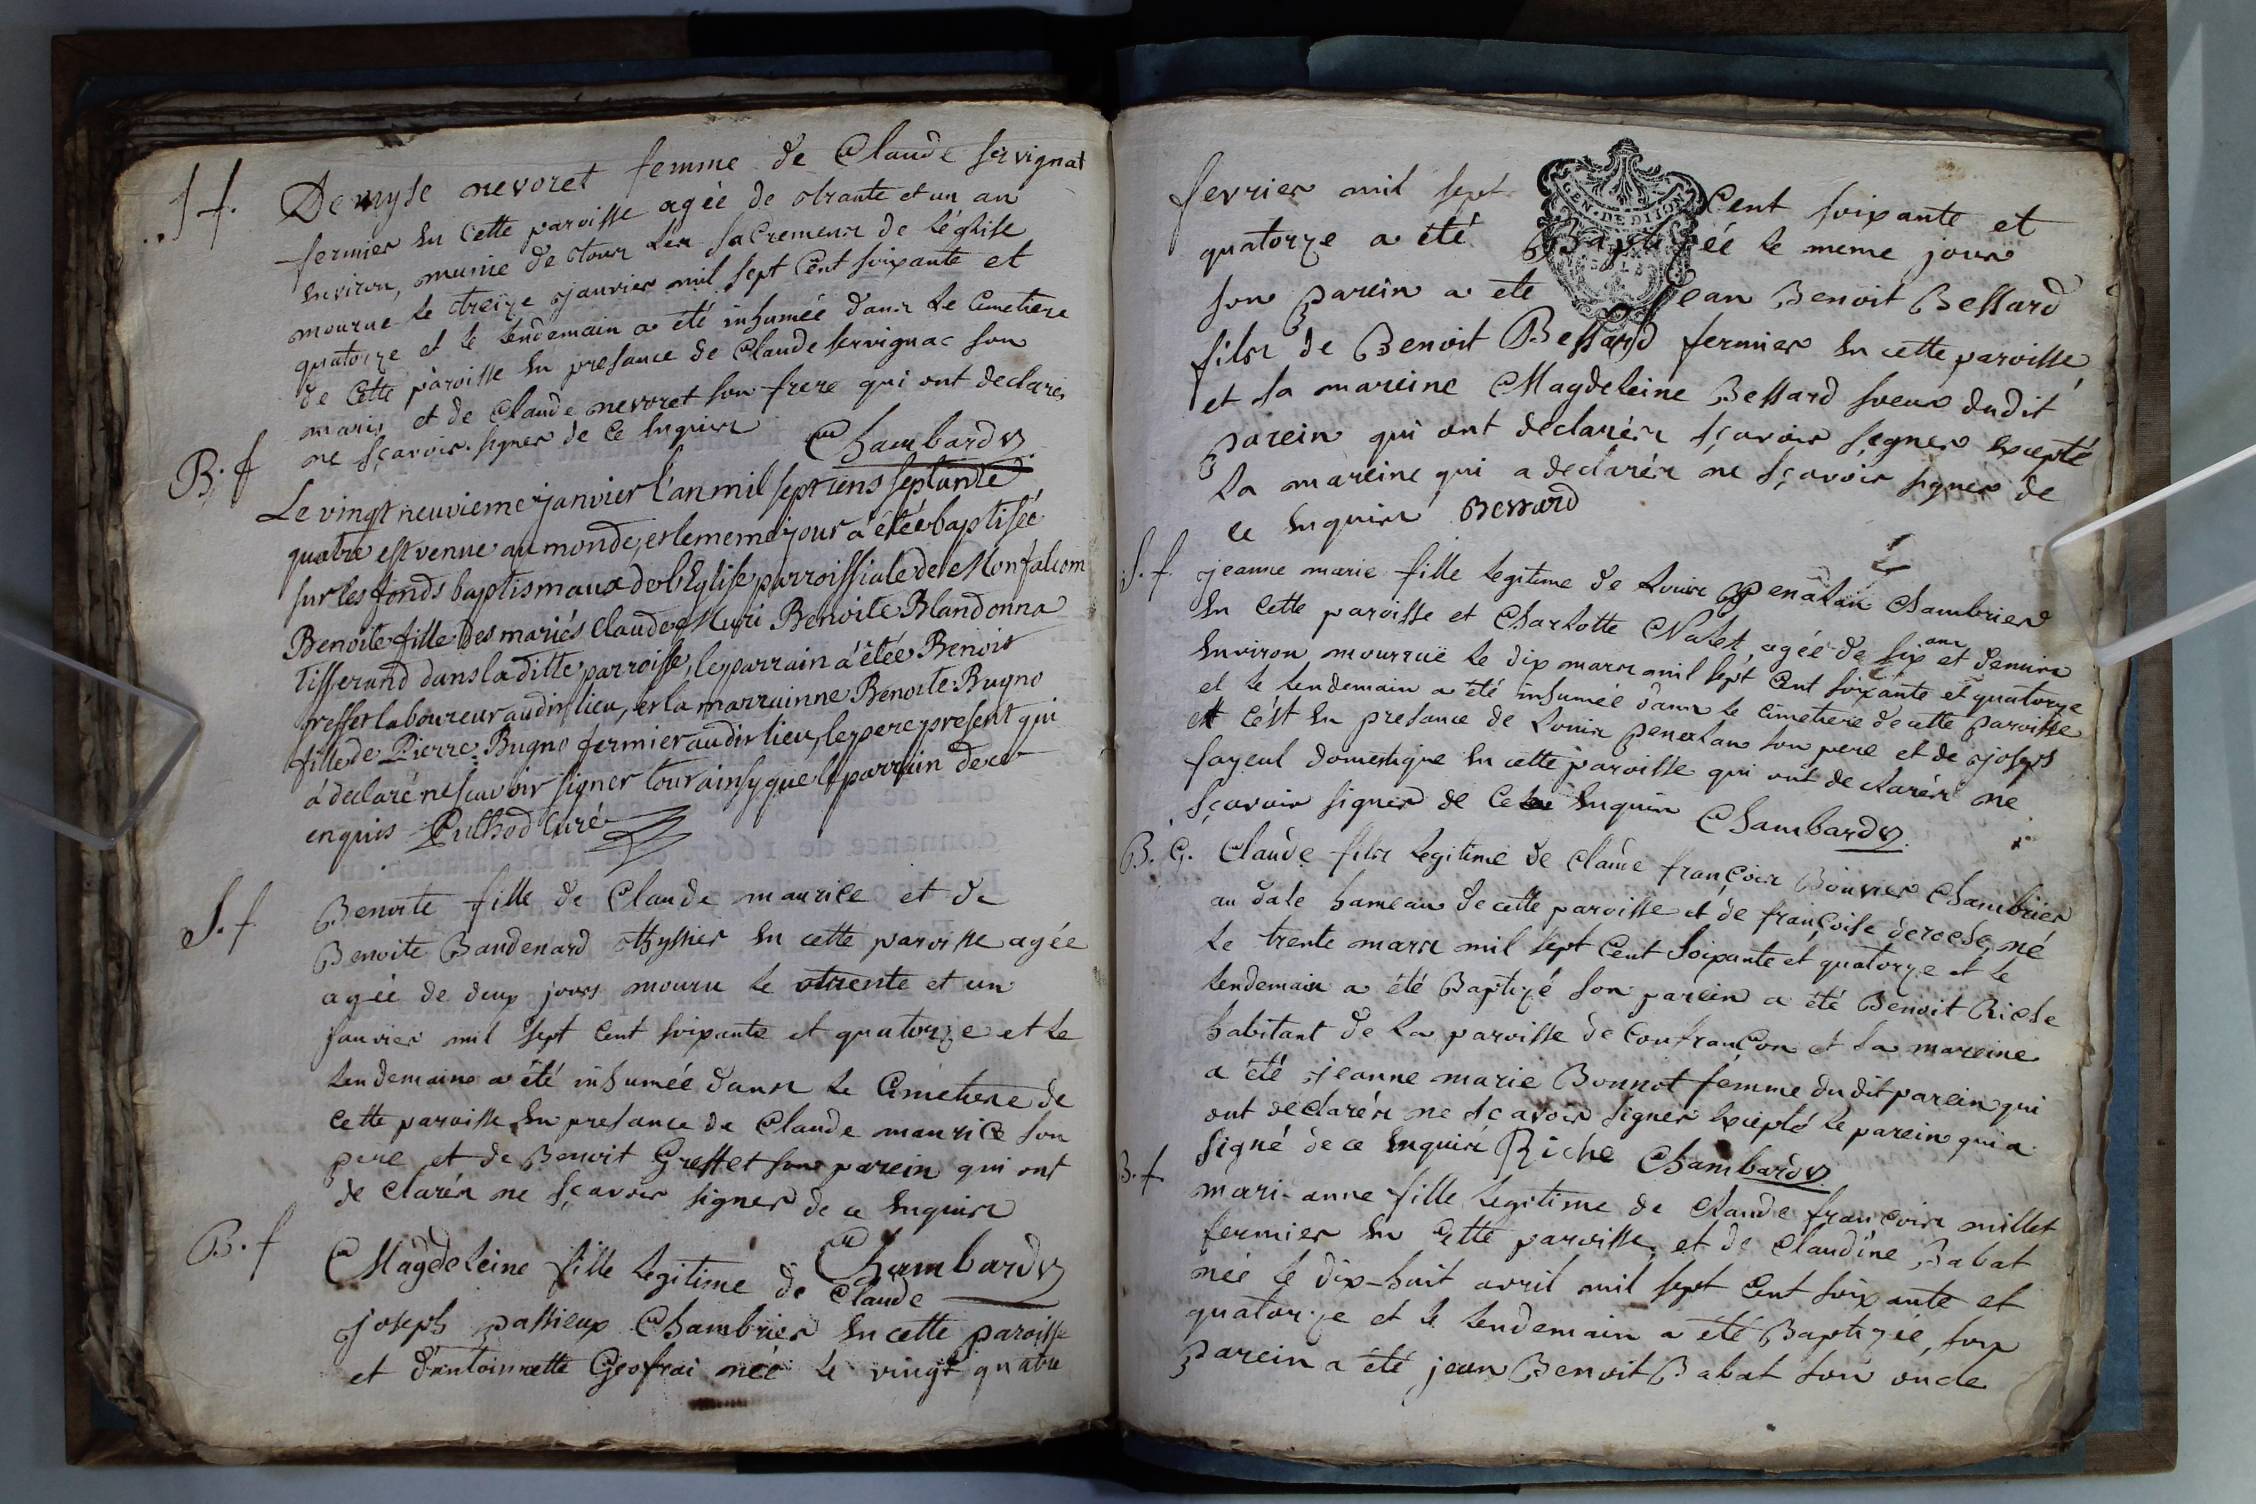 S f.
Denyse nevoret femme de Claude servignat
fermier en cette paroisse agée de trante et un an
environ, munie de tour les sacremens de léglise
mourue le treize janvier mil sept cent soixante et
quatorze et le lendemain a été inhumée dans le cimetiere
de cette paroisse en presance de Claude servignac son
mari, et de Claude nevoret son frere qui ont declarés
ne sçavoir signer de ce enquis Chambard
B. f
Le vingt neuvieme janvier l'an mil sept cens septante
quatre est venue au monde, et le meme jour a étée baptisée
sur les fonds baptismaux de l'Eglise parroissiale de Monfalcom
Benoite fille des mariés Claude Muri Benoite Blandonna
tisserand dans la ditte parroisse, le parrain a étée Benoit
gresset laboureur audit lieu, et la marrainne Benoite Bugno
fille de Pierre Bugno fermier audit lieu, le pere present qui
a declaré ne scavoir signer tout ainsy que le parrain de ce
enquis Pulhod curé
S. f
Benoite fille de Claude maurice et de
Benoite Baudenard thyssier en cette paroisse agée
agée de deux jours mouru le trente et un
janvier mil sept cent soixante et quatorze et le
lendemain a été inhumée dans le Cimetiere de
cette paroisse en presance de Claude maurice son
pere et de Benoit Gresset son parein qui ont
declarés ne sçavoir signer de ce enquis
Chambard
B. f
Magdeleine fille legitime de Claude
joseph passieux Chambrier en cette paroisse
et d'antoinnette Geofrai née le vingt quatre
fevrier mil sept Cent soixante et
GEN. DE DIJON
quatorze a été Baptizée le meme jour
son parein a ete jean Benoit Bessard
fils de Benoit Bessard fermier en cette paroisse
et sa mareine Magdeleine Bessard soeur dudit
parein qui ont declarés sçavoir signer excepté
la mareine qui a declarér ne sçavoir signer de
ce enquis Bessard
S. f.
jeanne marie fille legitime de Louis penalan Chambrier
en cette paroisse et Charlotte Nalet, agée de six ans et demis
environ mourrue le dix mars mil sept Cent soixante et quatorze
et le lendemain a été inhumée dans le cimetiere de cette paroisse
et c'est en presance de Louis penalan son pere et de joseph
fayeul domestique en cette paroisse qui ont declarés ne
sçavoir signer de ce enquis Chambard
B. G.
Claude fils legitime de claude françois Bouvier Chambrier
au dale hameau de cette paroisse et de françoise deroche, né
le trente mars mil sept Cent Soixante et quatorze et le
lendemain a été Baptizé son parein a été Benoit Riche
habitant de la paroisse de Confrançon et la mareine
a été jeanne marie Bonnot femme du dit parein qui
ont declarés ne scavoir signer excepté le parein qui a
signé de ce enquis Riche Chambard
B. f.
mari-anne fille legitime de Claude françois millet
fermier en cette paroisse et de Claudine Babat
née le dix-huit avril mil sept Cent soixante et
quatorze et le lendemain a été Baptizée, son
parein a été jean Benoit Babat son oncle